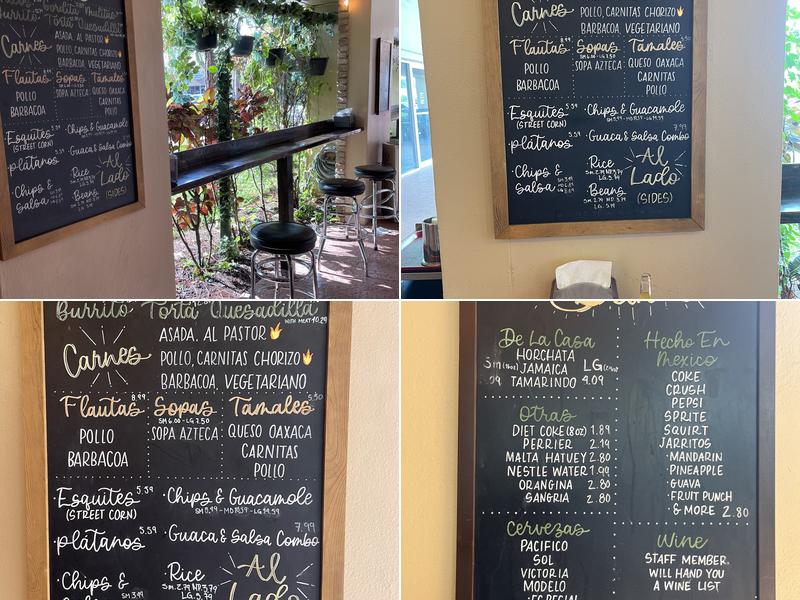 Burrito Torta Quesadilla
Carnes
ASADA, AL PASTOR
POLLO, CARNITAS CHORIZO
BARBACOA, VEGETARIANO
Flautas 8.99
POLLO
BARBACOA
Sopas
SM 6.00 - LG 7.50
SOPA AZTECA
Tamales
QUESO OAXACA
CARNITAS
POLLO
Esquites 5.59
(STREET CORN)
plátanos 5.59
Chips & Salsa
Chips & Guacamole
Guaca & Salsa Combo
Rice
Beans
Al Lado
(SIDES)
Carnes
POLLO, CARNITAS CHORIZO
BARBACOA, VEGETARIANO
Flautas 8.99
POLLO
BARBACOA
Sopas
SM 6.00 - LG 7.50
SOPA AZTECA
Tamales 5.50
QUESO OAXACA
CARNITAS
POLLO
·Esquites 5.59
(STREET CORN)
·plátanos 5.59
·Chips & Salsa
·Chips & Guacamole
7.99
·Guaca & Salsa Combo
Rice
SM 2.79 MD 3.79
LG 5.79
·Beans
SM 2.79 MD 3.79
LG 5.79
Al Lado
(SIDES)
Burrito Torta Quesadilla
WITH MEAT 10.29
Carnes
ASADA, AL PASTOR
POLLO, CARNITAS CHORIZO
BARBACOA, VEGETARIANO
Flautas 8.99
POLLO
BARBACOA
Sopas
SM 6.00 - LG 7.50
SOPA AZTECA
Tamales 5.50
QUESO OAXACA
CARNITAS
POLLO
·Esquites 5.59
(STREET CORN)
·plátanos 5.59
·Chips &
SM 3.49
·Chips & Guacamole
7.99
·Guaca & Salsa Combo
Rice
SM 2.79 MD 3.79
LG 5.79
Al
De La Casa
HORCHATA
JAMAICA
TAMARINDO 4.09
LG
Otras
DIET COKE (8oz) 1.89
PERRIER 2.19
MALTA HATUEY 2.80
NESTLE WATER 1.99
ORANGINA 2.80
SANGRIA 2.80
Cervezas
PACIFICO
SOL
VICTORIA
MODELO
·ESPECIAL
Hecho En
Mexico
COKE
CRUSH
PEPSI
SPRITE
SQUIRT
JARRITOS
·MANDARIN
·PINEAPPLE
·GUAVA
·FRUIT PUNCH
·& MORE 2.80
Wine
STAFF MEMBER
WILL HAND YOU
A WINE LIST